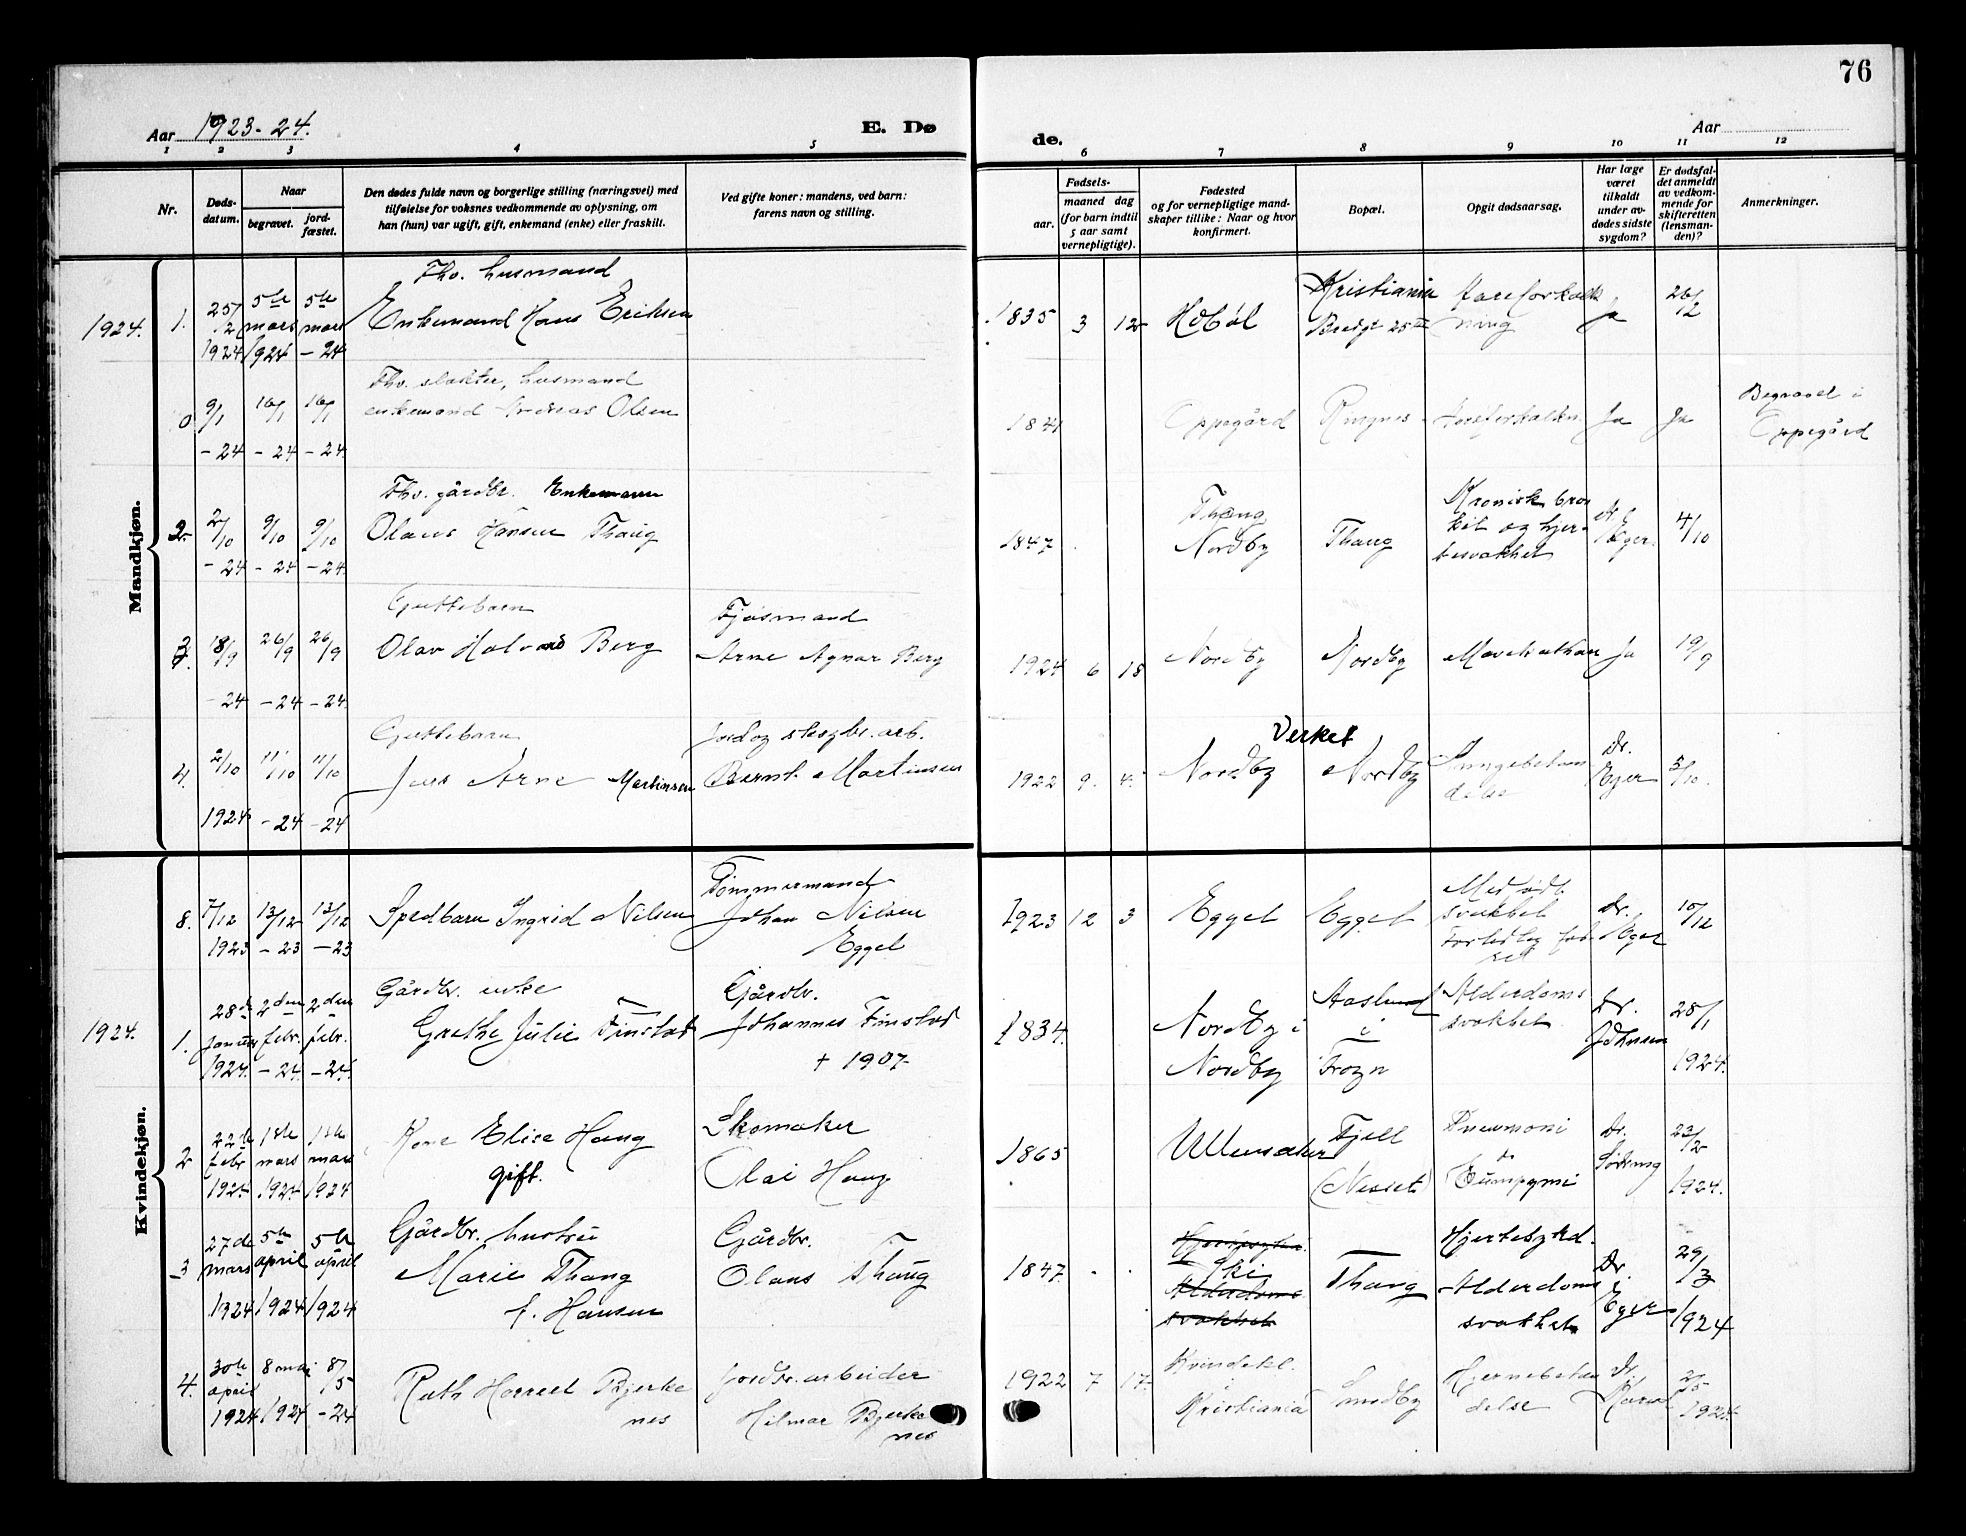 76
Aar 1923-24.
E. Dø
de.
Aar
1 2 3 4 5 6 7 8 9 10 11 12
Nr.
Døds-
datum.
Naar
begravet.
jord-
fæstet.
Den dødes fulde navn og borgerlige stilling (næringsvei) med
tilføielse for voksnes vedkommende av oplysning, om
han (hun) var ugift, gift, enkemand (enke) eller fraskilt.
Ved gifte koner: mandens, ved barn:
farens navn og stilling.
Fødsels-
aar.
maaned dag
(for barn indtil
5 aar samt
vernepligtige).
Fødested
og for vernepligtige mand-
skaper tillike: Naar og hvor
konfirmert.
Bopæl.
Opgit dødsaarsag.
Har læge
været
tilkaldt
under av-
dødes sidste
sygdom?
Er dødsfal-
det anmeldt
av vedkom-
mende for
skifteretten
(lensman-
den)?
Anmerkninger.
Mandkjøn.
1924.
1.
25/2 1924
5te mars 1924
5te mars -24
Fhv. husmand
Enkemand Hans Eriksen
1835 3 12
Hobøl
Kristiania
Ja
26/2
0
9/1 -24
16/1 -24
16/1 -24
Fhv. slakter, husmand
enkemand Andreas Olsen
Oppegård
Ringnes
Ja
Ja
Begravet i
Oppegård
2
2/10 -24
9/10 -24
9/10 -24
Fhv. gårdbr. Enkemann
Olaus Hansen Thaug
1847
Thaug
Nordby
Thaug
Kronisk bron
kit og hjer-
tesvakhet
Eger.
4/10
3.
18/9 -24
26/9 -24
26/9 -24
Guttebarn
Olav Halvard Berg
Fjøsmand
Arne Agnar Berg
1924 6 18
Nordby
Nordby
Ja
19/9
4.
2/10 1924
11/10 -24
11/10 -24
Guttebarn
Jens Arne Martinsen
Jord og skogbr. arb.
Bernt Martinsen
1922 9. 4.
Verket
Nordby
Nordby
Lungebeten
delse
Dr.
Eger
3/10.
Kvindekjøn.
8.
7/12 1923
13/12 -23
13/12 -23
Spedbarn Ingrid Nilsen
Tømmermand
Johan Nilsen
Eggel
1923 12 3
Eggel
Eggel
Medfødt
svakhet
Dr.
Eger
10/12
1924.
1.
28de januar 1924.
2den febr. -24.
2den febr. -24.
Gårdbr. enke
Grethe Julie Finstad
Gårdbr.
Johannes Finstad
+ 1907
1834.
Nordby i
Nordby
Aaslund
i
Frogn
Alderdoms
svakhet.
Dr.
Johnsen
28/1
1924.
2
22de febr 1924
1ste mars 1924
1ste mars 1924
Kone Elise Haug
gift.
Skomaker
Olai Haug
1865
Ullensaker
Fjell
(Nesset)
Pneumoni
Dr.
23/2
1924.
3
27de mars 1924
5te april 1924
5te april 1924
Gårdbr. hustru
Marie Thaug
f. Hansen
Gårdbr.
Olaus Thaug
1847 . .
Ski
Alderdoms
svakhet
Thaug
Hjertesykd.
Alderdoms
svakhet.
Dr.
Eger
29/3
1924
4.
30te april 1924
8 mai 1924
8/5 -24
Ruth Harriet Bjerke
nes
Jordbr. arbeider
Hilmar Bjerke
nes
1922 7 17.
Kvindekl.
Kristiania
Sundby
Hjernebeten
delse
Dr.
2/5
1924.